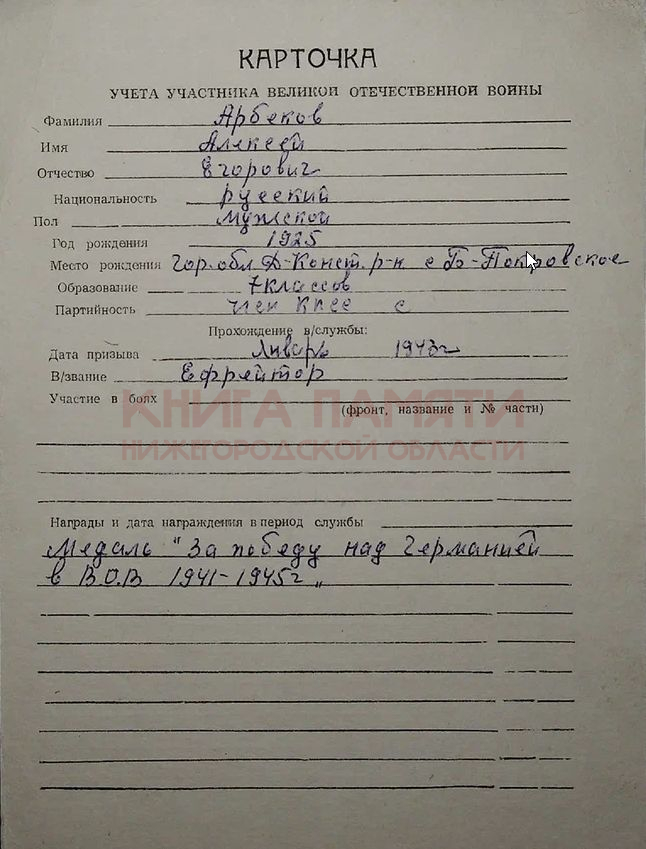 КАРТОЧКА
УЧЕТА УЧАСТНИКА ВЕЛИКОЙ ОТЕЧЕСТВЕННОЙ ВОЙНЫ
Фамилия Арбеков
Имя Алексей
Отчество Егорович
Национальность русский
Пол Мужской
Год рождения 1925
Место рождения Гор.обл Д-Конст. р-н с Б-Покровское
Образование 7 классов
Партийность член КПСС с
Прохождение в/службы:
Дата призыва Январь 1943г
В/звание Ефрейтор
Участие в боях
КНИГА ПАМЯТИ
(фронт, название и № части)
НИЖЕГОРОДСКОЙ ОБЛАСТИ
Награды и дата награждения в период службы
Медаль "За победу над Германией
в В.О.В 1941-1945г"